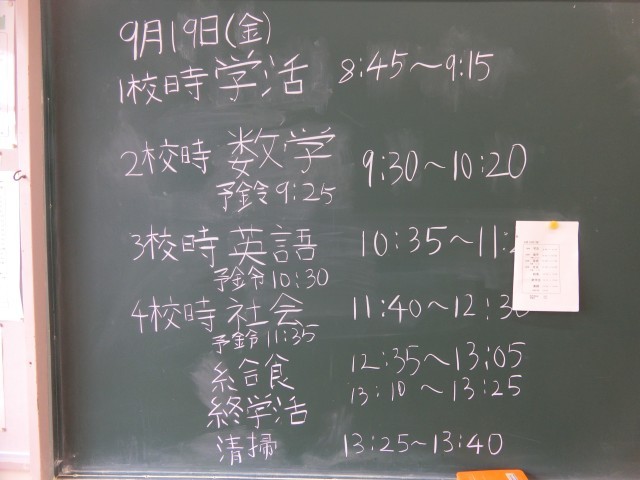 9月19日(金)
1校時 学活 8:45～9:15
2校時 数学 9:30～10:20
予鈴 9:25
3校時 英語 10:35～11:
予鈴 10:30
4校時 社会 11:40～12:30
予鈴 11:35
給食 12:35～13:05
終学活 13:10～13:25
清掃 13:25～13:40